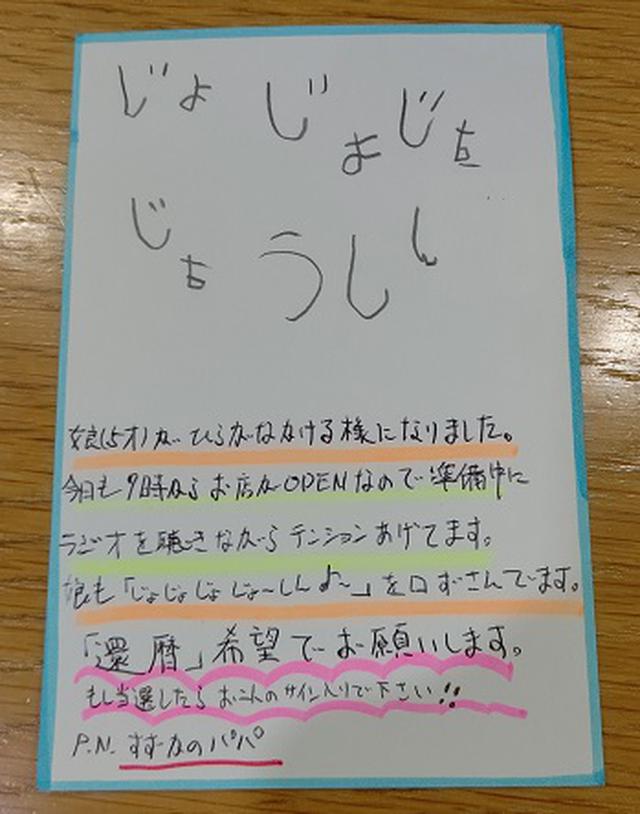 じょじょじょ
じょうしん
娘(5才)がひらがなかける様になりました。
今日も9時からお店がOPENなので準備中に
ラジオを聴きながらテンションあげてます。
娘も「じょじょじょじょ〜しん♪〜」を口ずさんでます。
「還暦」希望でお願いします。
もし当選したら のサイン入りで下さい!!
P.N. すずかのパパ